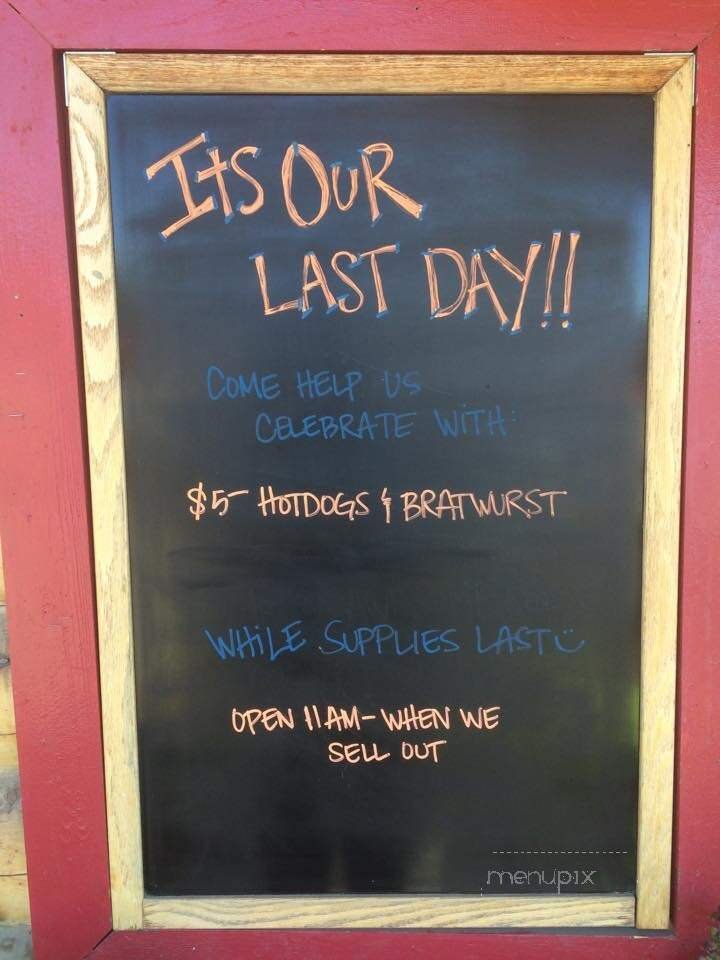 ItS OUR
LAST DAY!!
COME HELP US
CELEBRATE WITH:
$5- HOTDOGS & BRATWURST
WHILE SUPPLIES LAST
OPEN 11AM-WHEN WE
SELL OUT
menupix